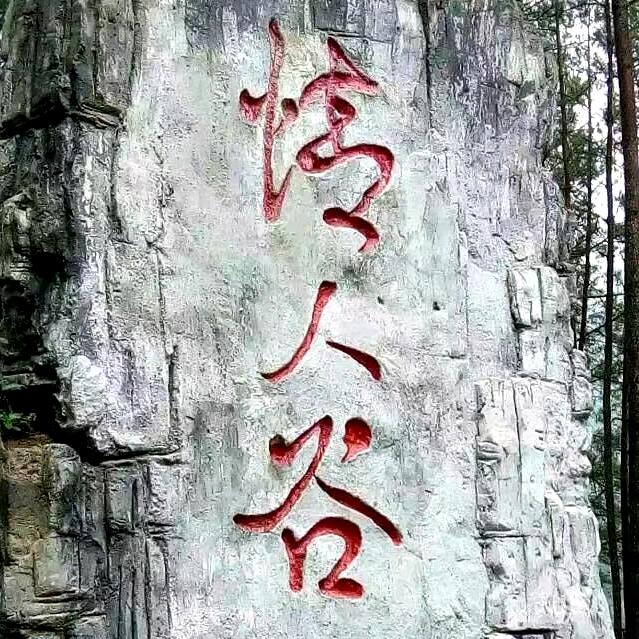 情人谷